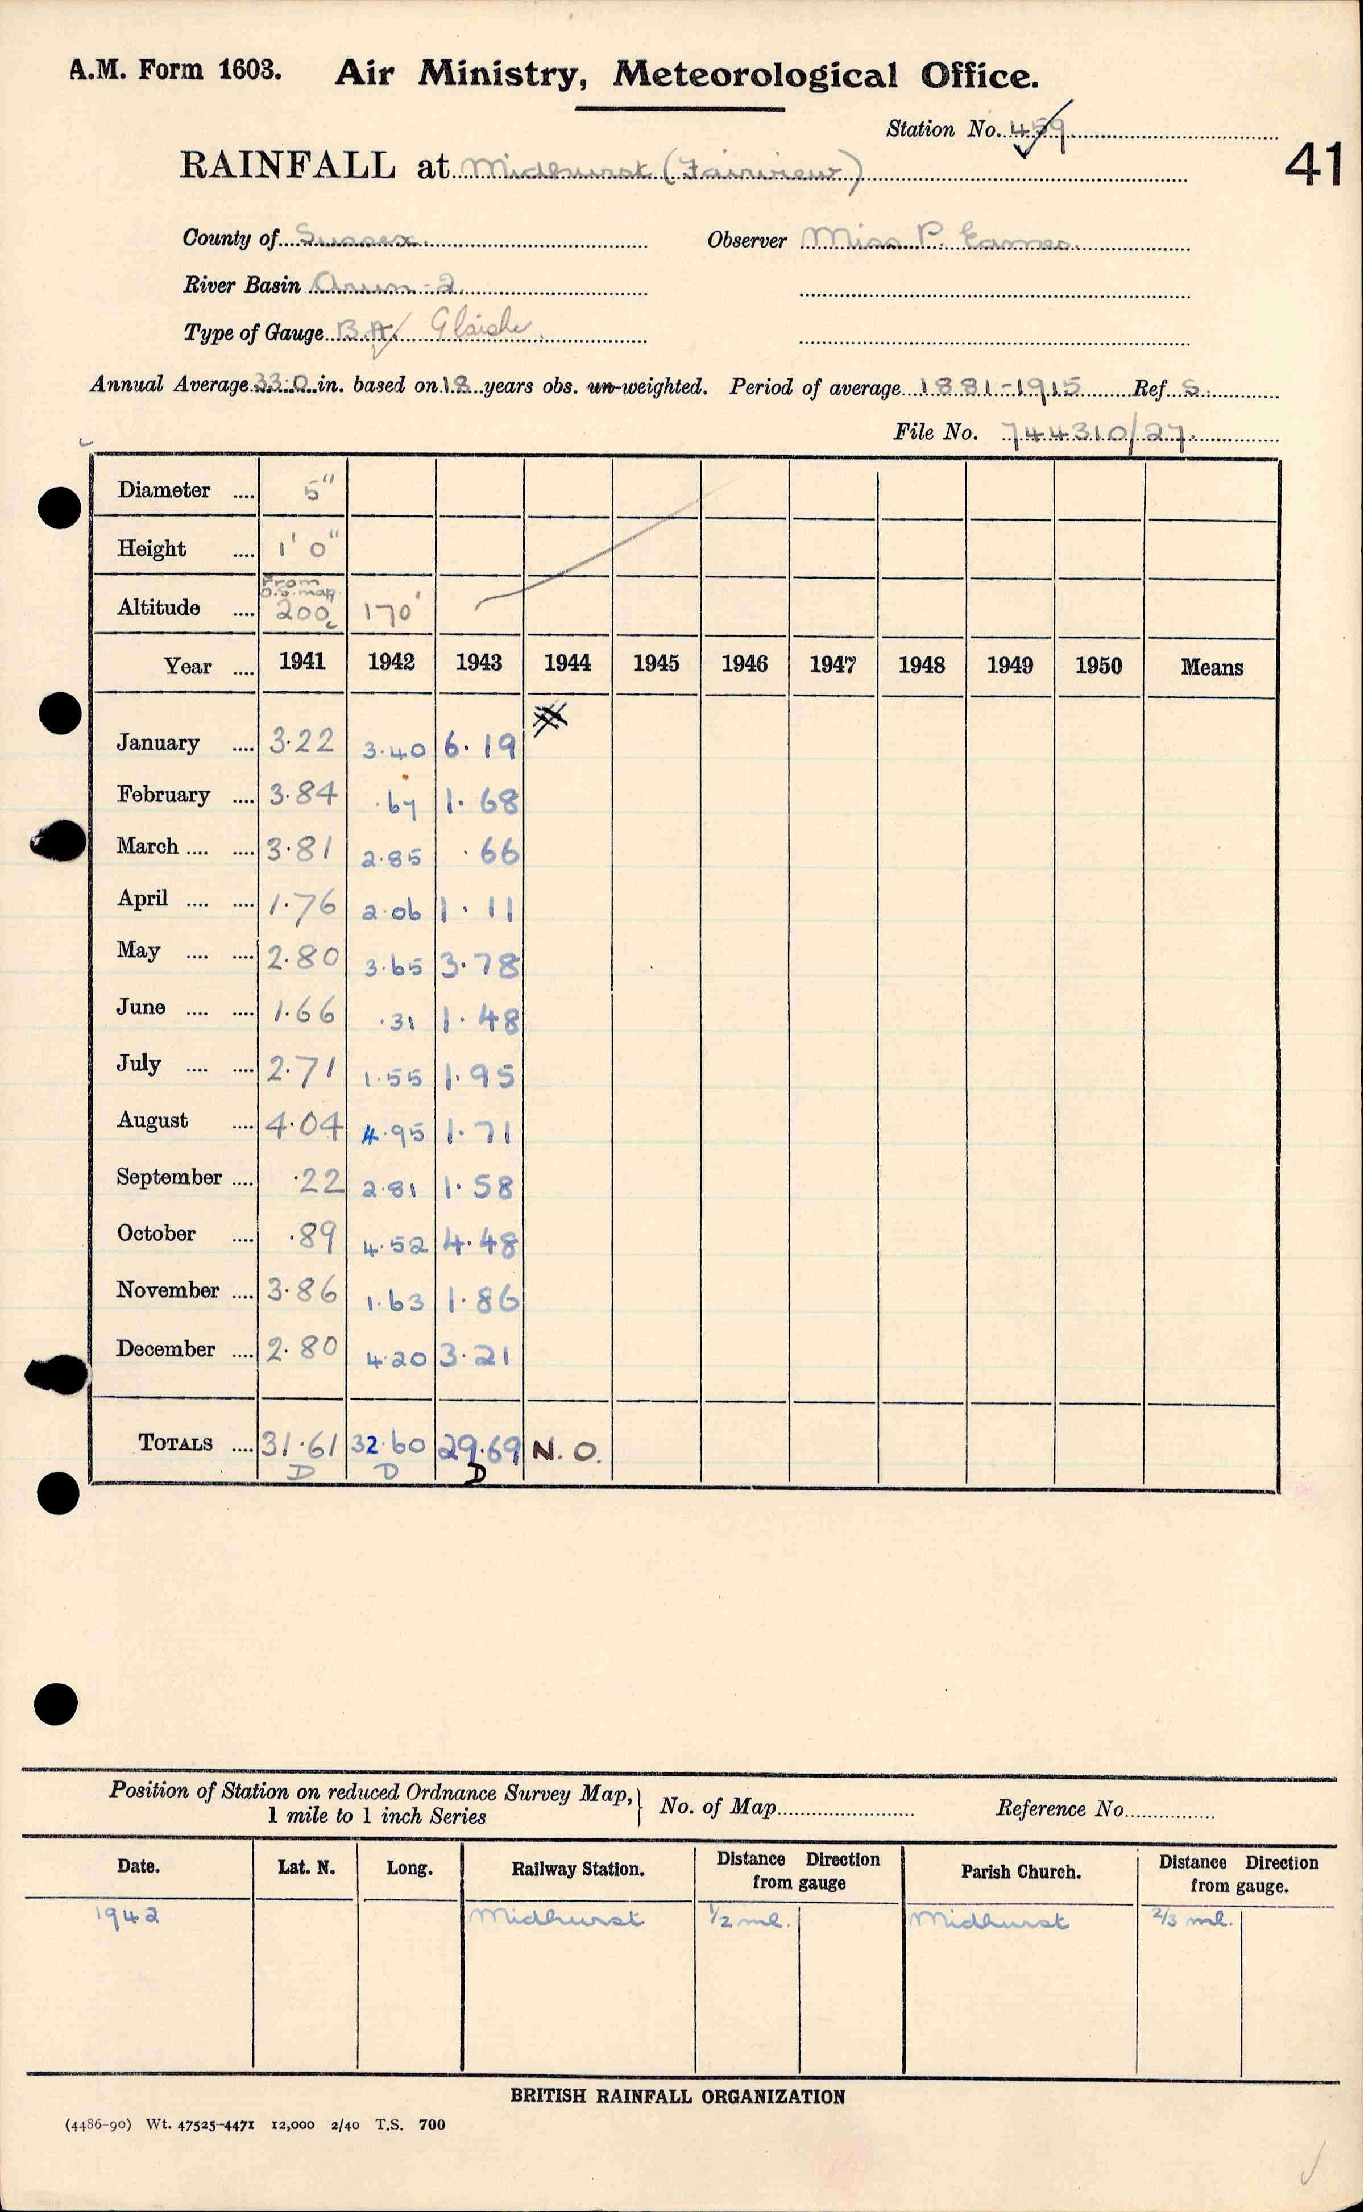 A.M. Form 1603. Air Ministry, Meteorological Office.
Station No. 459
41
RAINFALL at Midhurst (Fairview)
County of Sussex. Observer Miss P. Eames.
River Basin Arun-2
Type of Gauge B.A. Glaisher
Annual Average 33.0 in. based on 18 years obs. un-weighted. Period of average 1881-1915 Ref S.
File No. 744310/27.
Diameter .... 5"
Height .... 1' 0"
From O.S. map
Altitude .... 200 170'
Year .... 1941 1942 1943 1944 1945 1946 1947 1948 1949 1950 Means
January .... 3.22 3.40 6.19
February .... 3.84 .67 1.68
March .... .... 3.81 2.85 .66
April .... .... 1.76 2.06 1.11
May .... .... 2.80 3.65 3.78
June .... .... 1.66 .31 1.48
July .... .... 2.71 1.55 1.95
August .... 4.04 4.95 1.71
September .... .22 2.81 1.58
October .... .89 4.52 4.48
November .... 3.86 1.63 1.86
December .... 2.80 4.20 3.21
TOTALS .... 31.61 32.60 29.69 N.O.
D D D
Position of Station on reduced Ordnance Survey Map, 1 mile to 1 inch Series } No. of Map Reference No.
Date. Lat. N. Long. Railway Station. Distance Direction from gauge Parish Church. Distance Direction from gauge.
1942 Midhurst 1/2 ml. Midhurst 2/3 ml.
BRITISH RAINFALL ORGANIZATION
(4486-90) Wt. 47525-4471 12,000 2/40 T.S. 700